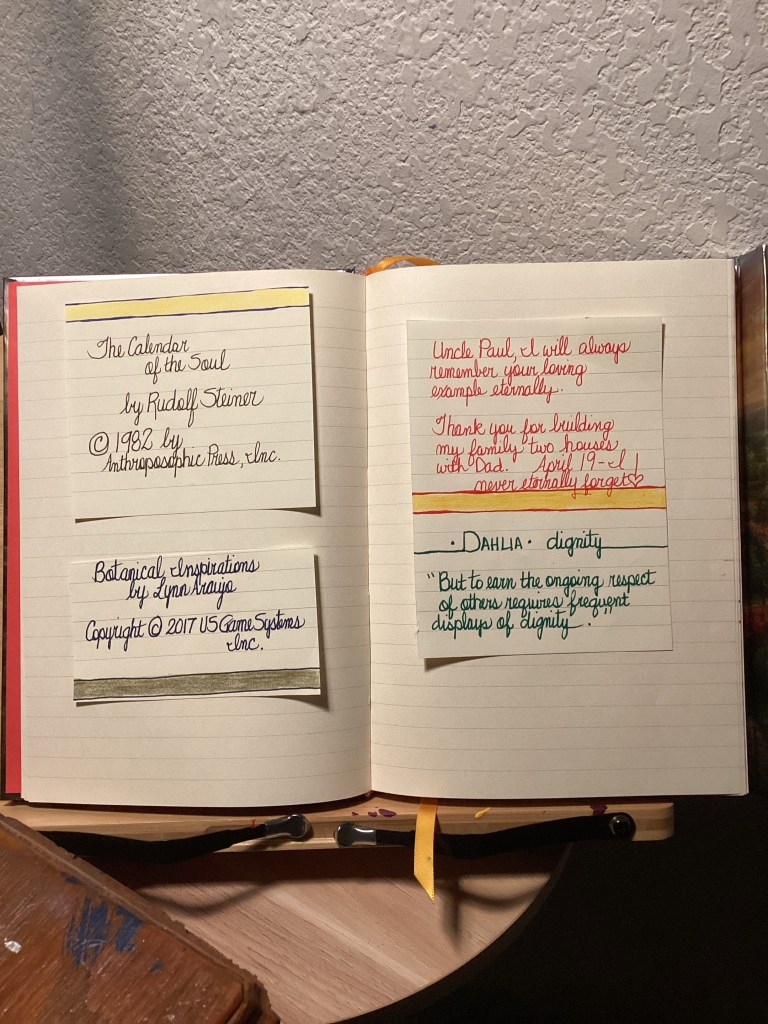 The Calendar
of the Soul
by Rudolf Steiner
© 1982 by
Anthroposophic Press, Inc.
Botanical Inspirations
by Lynn Araujo
Copyright © 2017 US Game Systems
Inc.
Uncle Paul, I will always
remember your loving
example eternally.
Thank you for building
my family two houses
with Dad. April 19 - I
never eternally forget♡
· DAHLIA · dignity
"But to earn the ongoing respect
of others requires frequent
displays of dignity."